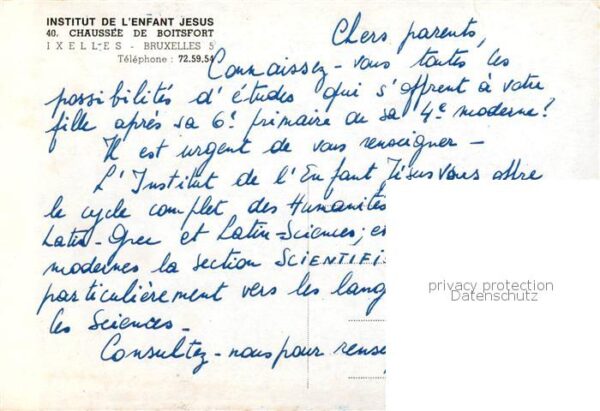 INSTITUT DE L'ENFANT JESUS
40, CHAUSSÉE DE BOITSFORT
IXELLES - BRUXELLES 5
Téléphone : 72.59.54
Chers parents,
Connaissez-vous toutes les
possibilités d'études qui s'offrent à votre
fille après sa 6e primaire ou sa 4e moderne?
Il est urgent de vous renseigner -
L'Institut de l'Enfant Jésus vous offre
le cycle complet des Humanités
Latin-Grec et Latin-Sciences; en
modernes la section SCIENTIFI
particulièrement vers les lang
les Sciences -
Consultez-nous pour rense
privacy protection
Datenschutz